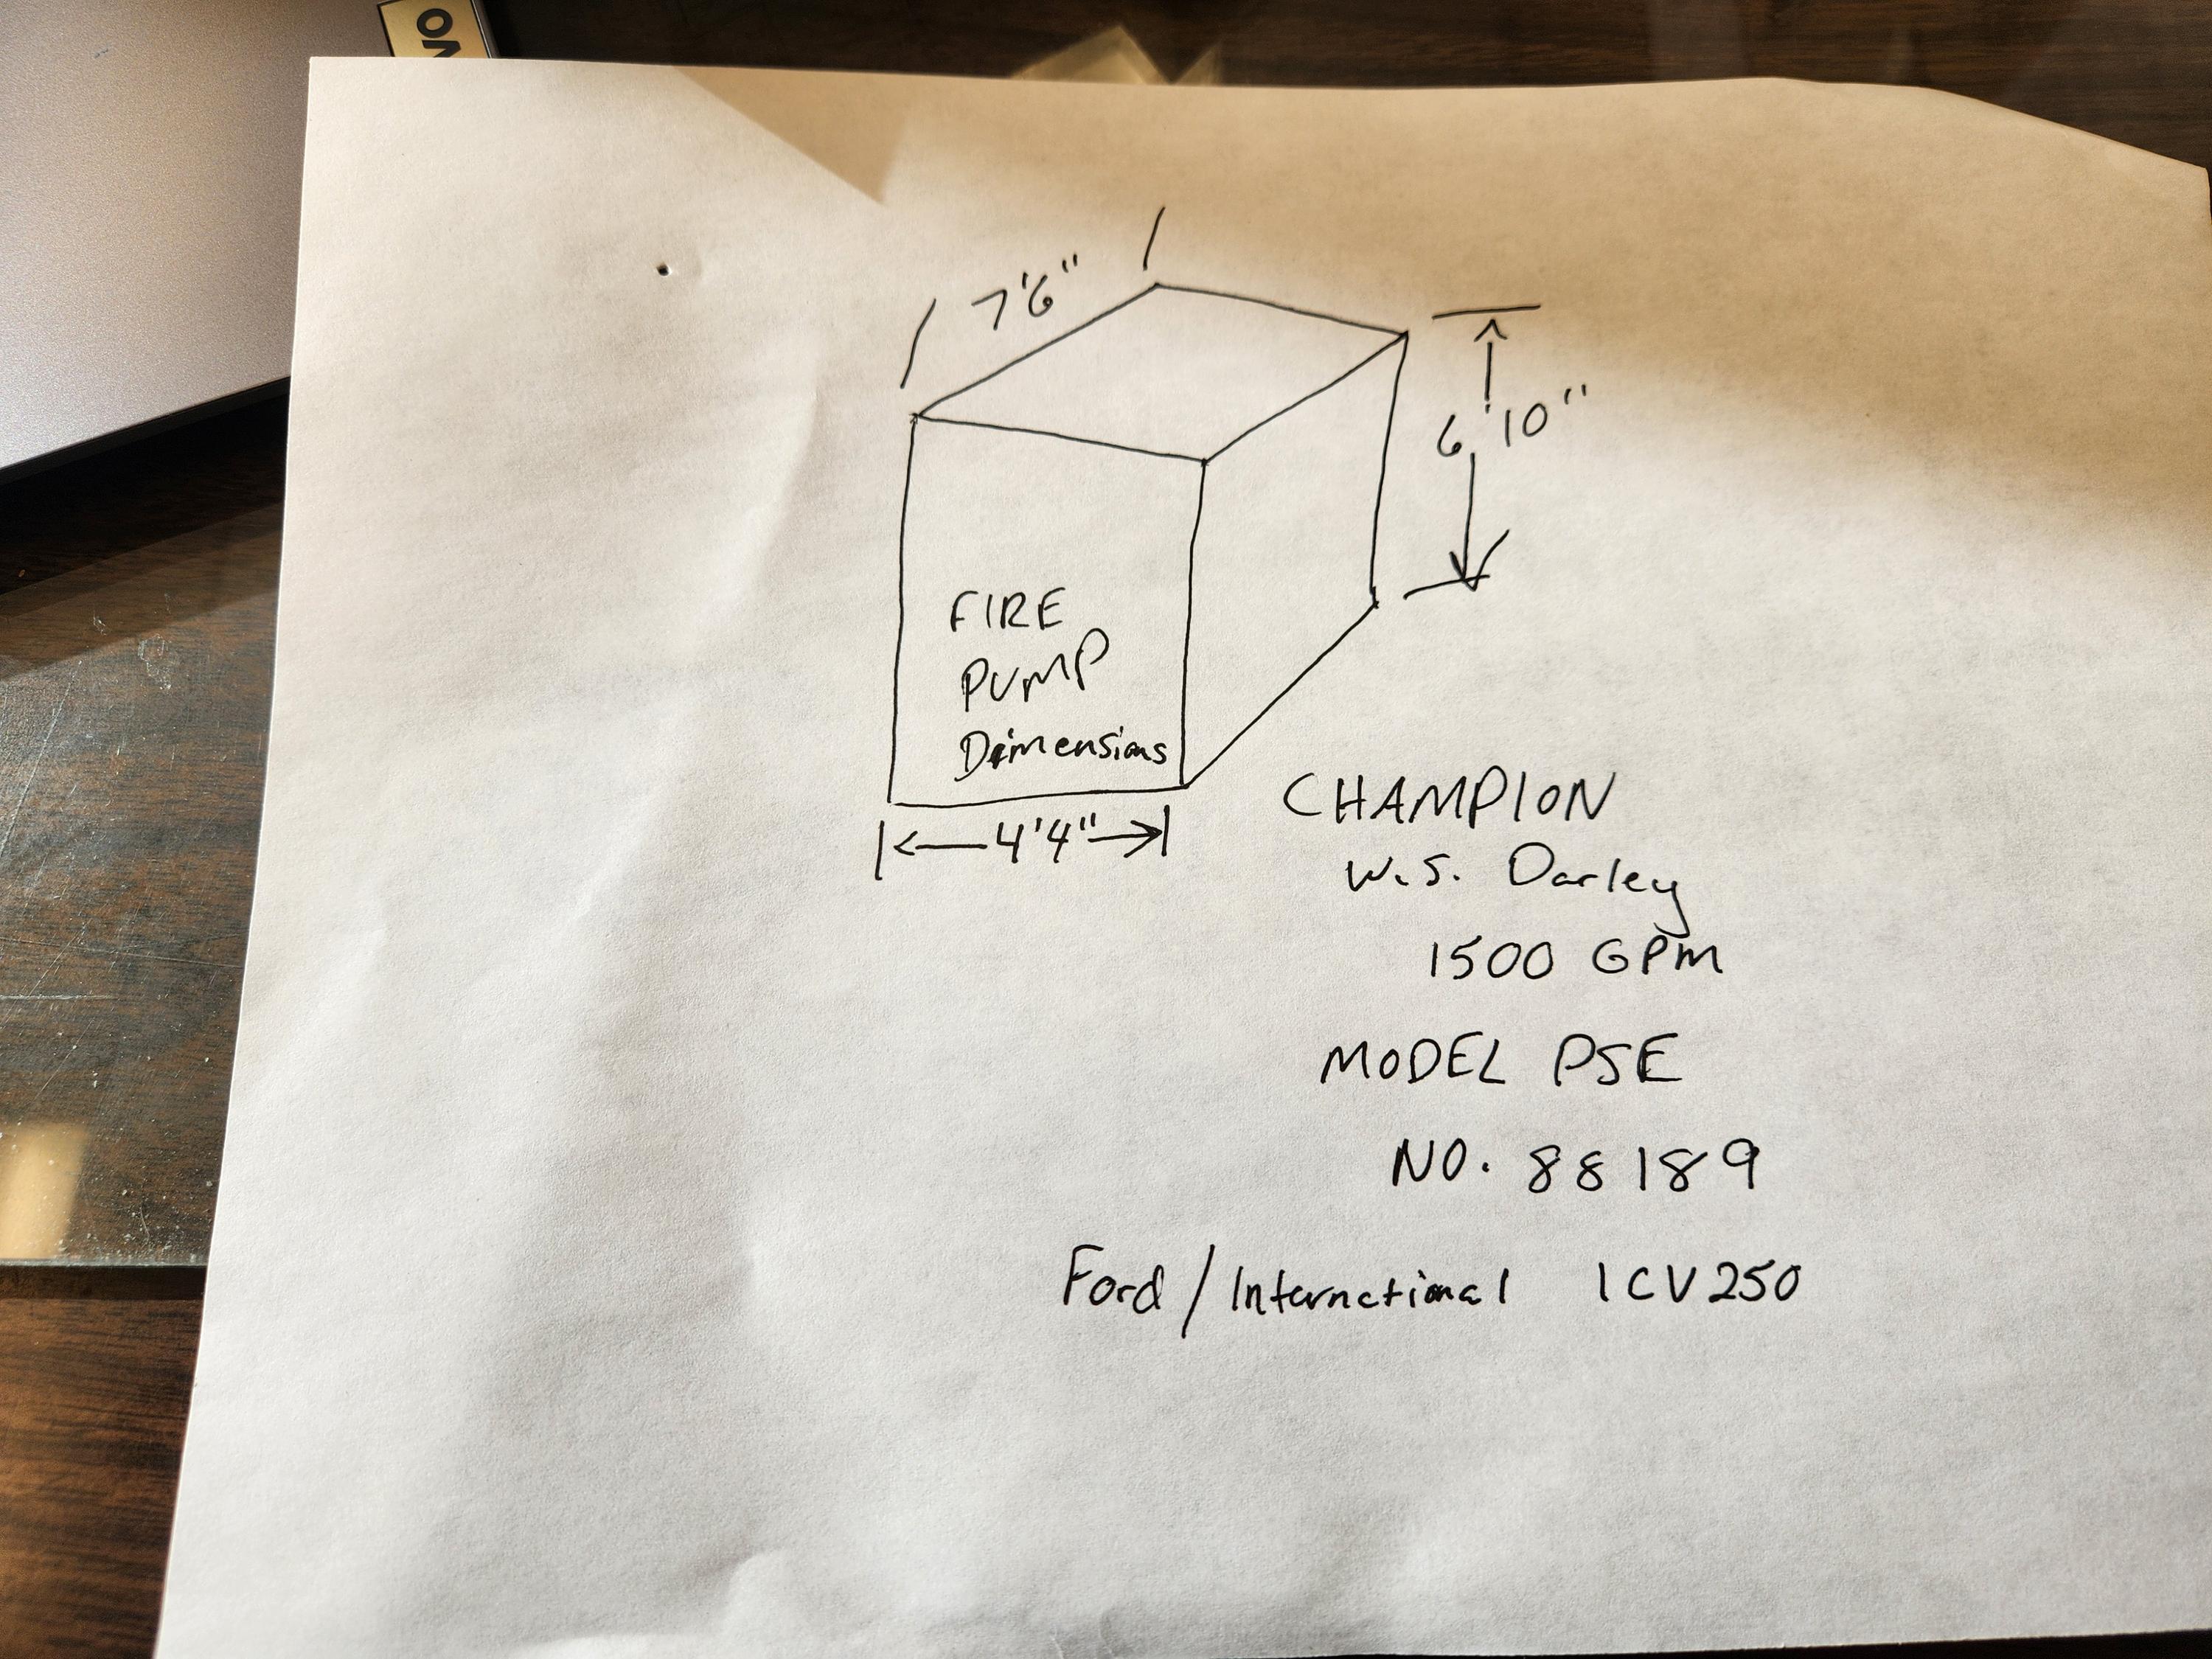 7'6"
6'10"
FIRE
PUMP
Dimensions
4'4"
CHAMPION
W.S. Darley
1500 GPM
MODEL PSE
NO. 88189
Ford / International 1CV250